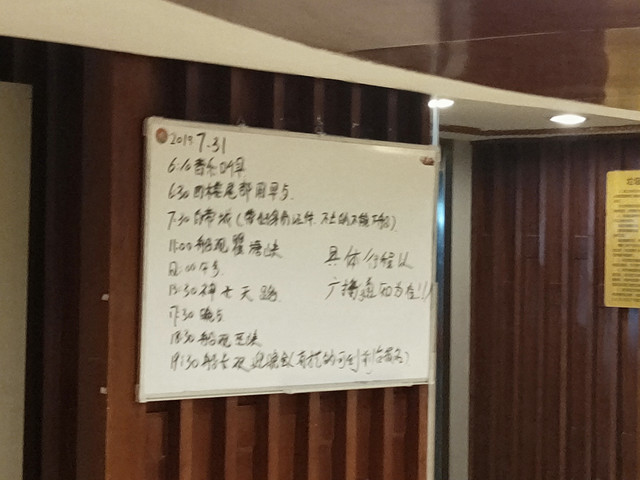 2019 7.31
6:10 音乐叫早
6:30 四楼尾部用早点.
7:30 白帝城(带好身份证件.不上的不能下船)
11:00 船观瞿塘峡
12:00 午
13:30 神女天路.
17:30 晚
18:30 船观巫峡
19:30 船长欢迎晚会(有
具体行程以
广播通知为准!!